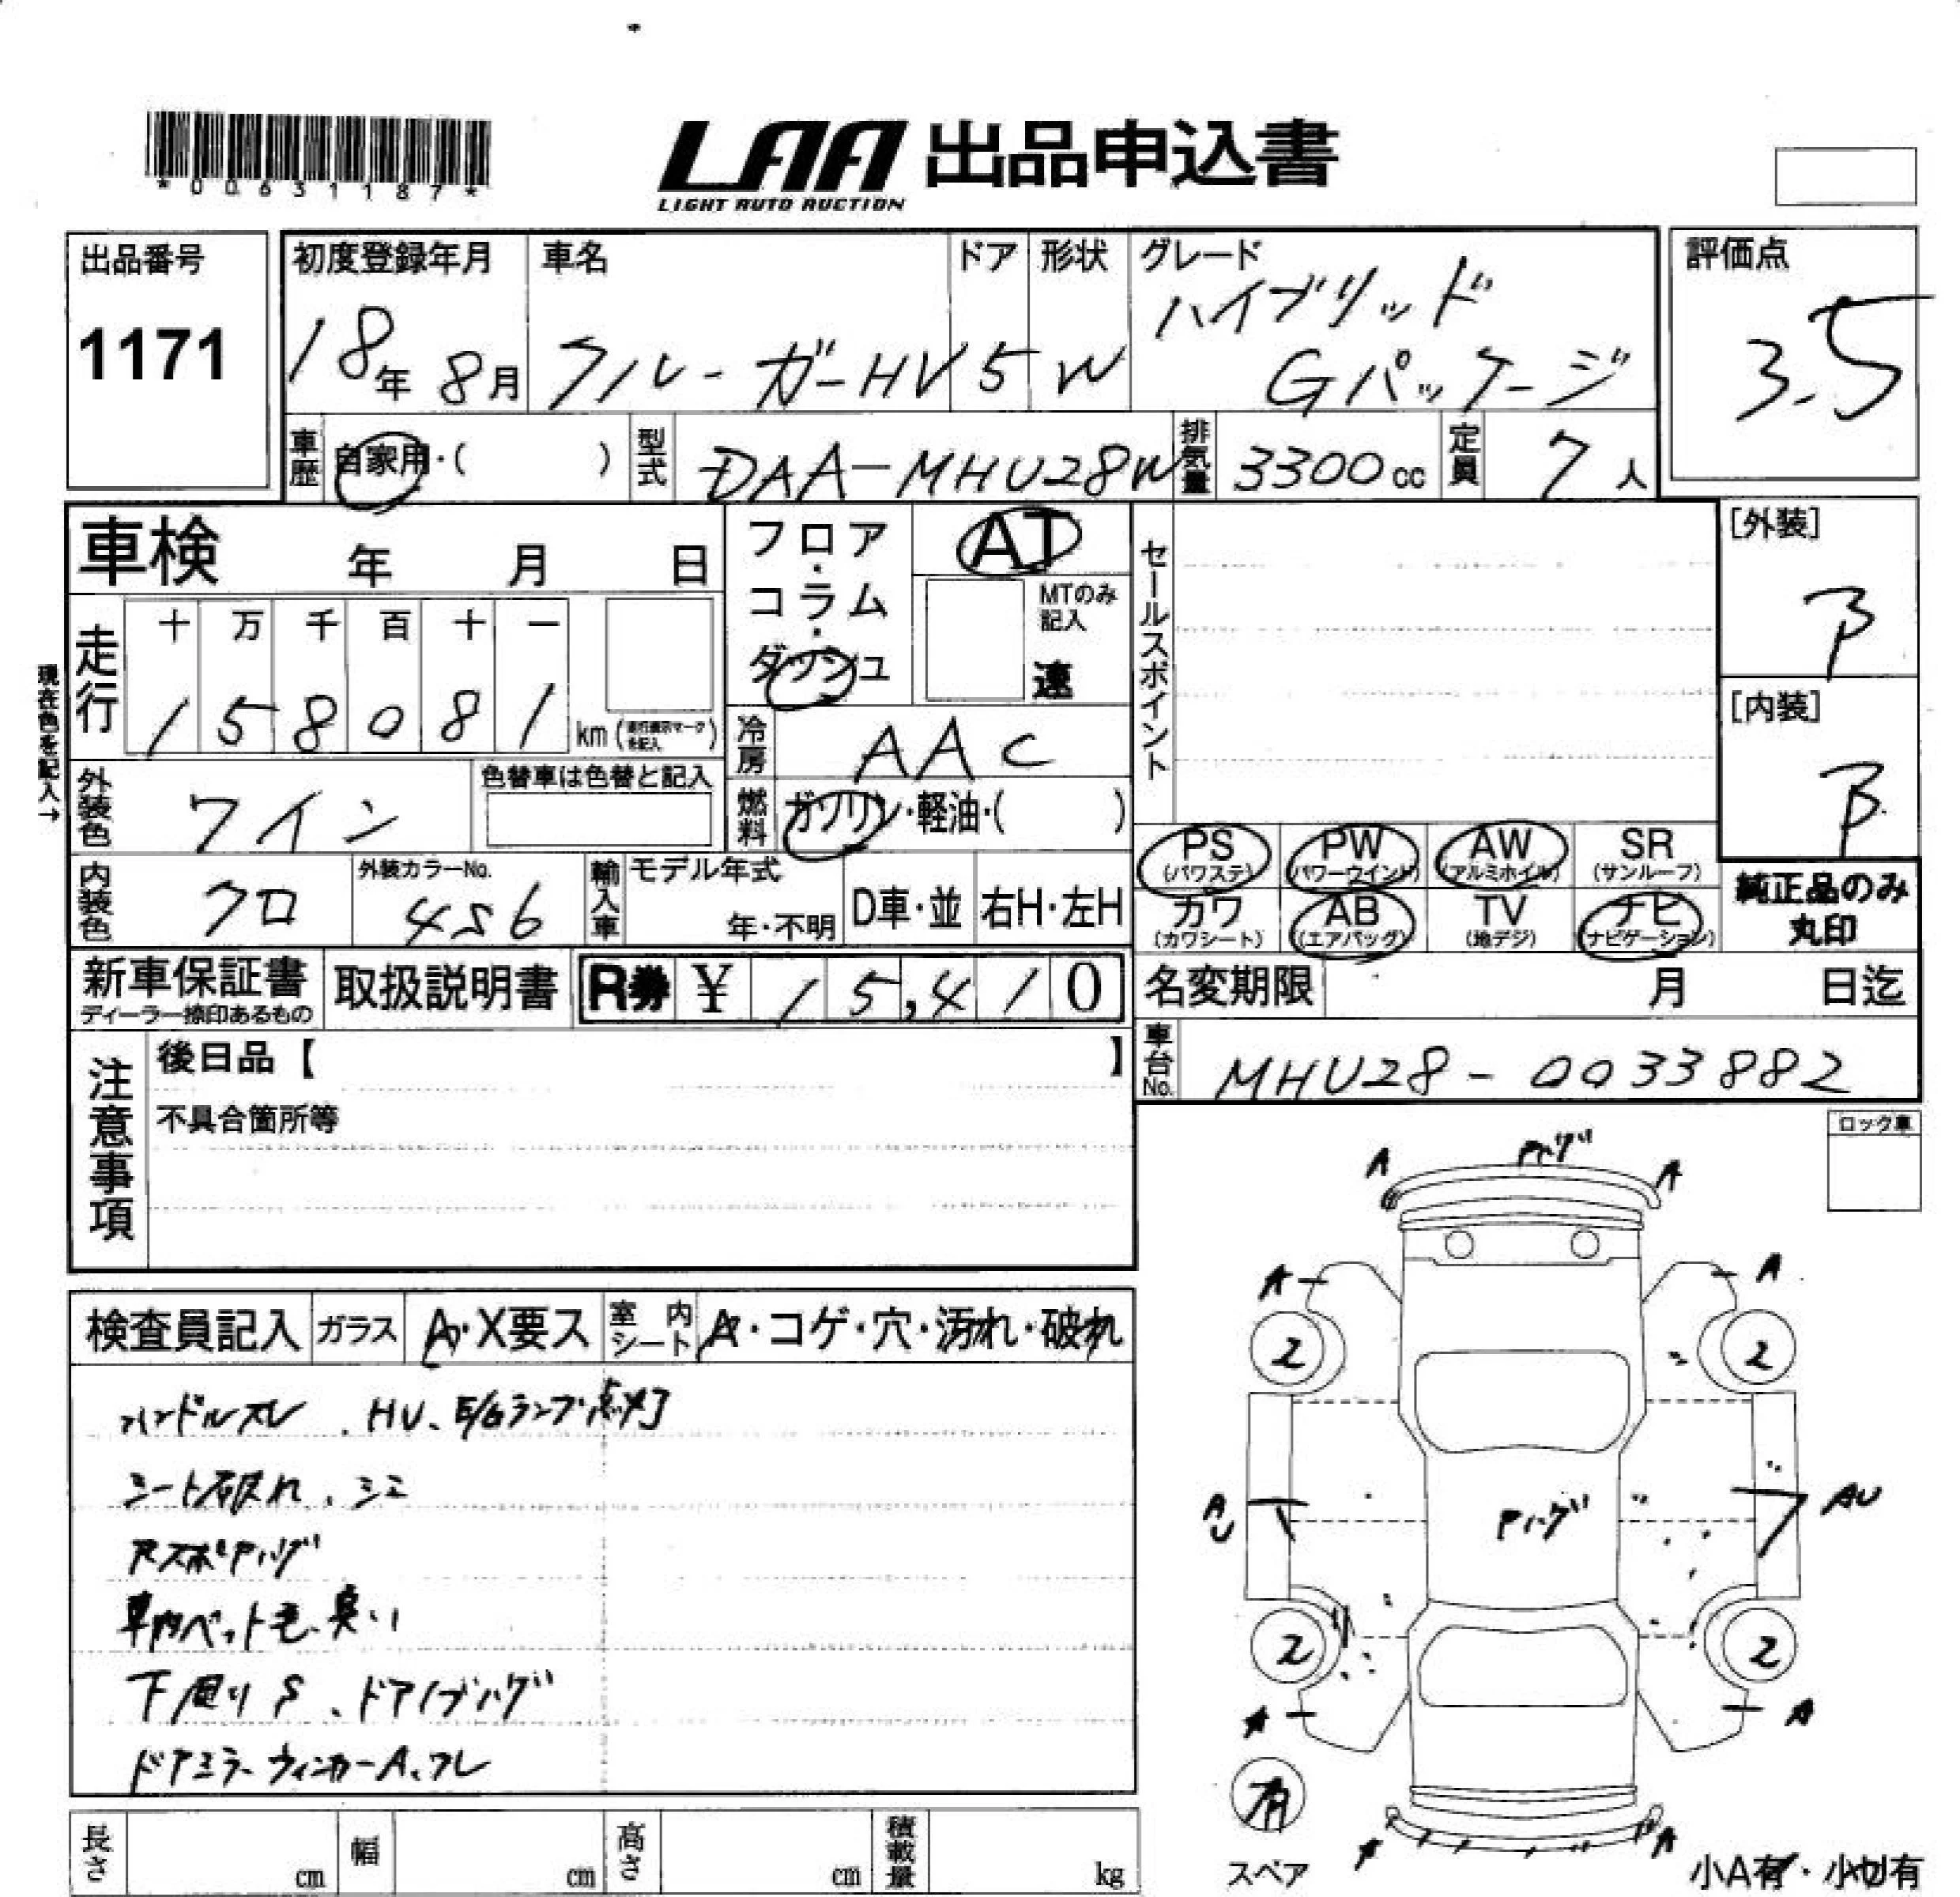 *00631187*
LAA 出品申込書
LIGHT AUTO AUCTION
出品番号
1171
初度登録年月
18年 8月
車名
クルーガーHV
ドア
5
形状
W
グレード
ハイブリッド
Gパッケージ
評価点
3.5
車歴
自家用・( )
型式
DAA-MHU28W
排気量
3300cc
定員
7人
車検 年 月 日
現在色を記入→
走行
十 万 千 百 十 一
1 5 8 0 8 1 km
フロア・
コラム・
ダッシュ
AT
MTのみ
記入
速
冷房
AAC
燃料
ガソリン・軽油・( )
外装色
ワイン
色替車は色替と記入
内装色
クロ
外装カラーNo.
4S6
輸入車
モデル年式
年・不明
D車・並
右H・左H
セールスポイント
[外装]
B
[内装]
B
PS
(パワステ)
PW
(パワーウインド)
AW
(アルミホイル)
SR
(サンルーフ)
カワ
(カワシート)
AB
(エアバッグ)
TV
(地デジ)
ナビ
(ナビゲーション)
純正品のみ
丸印
新車保証書
ディーラー捺印あるもの
取扱説明書
R券 ¥ 15,410
名変期限 月 日迄
車台No.
MHU28-0033882
注意事項
後日品【 】
不具合箇所等
ロック車
検査員記入
ガラス
A・X要ス
室内シート
A・コゲ・穴・汚れ・破れ
ハンドルスレ、HV、E/Gランプ点灯
シート破れ、シミ
車内ペット毛、臭い
下廻りS、ドアノブハゲ
ドアミラーウィンカーA、ワレ
A Pハゲ A
A A
2 2
AU Pハゲ AU
2 2
A A
有
スペア
A A
小A有・小U有
長さ cm
幅 cm
高さ cm
積載量 kg